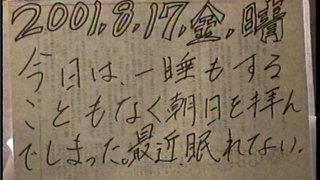 2001.8.17.金.晴
今日は、一睡もする
こともなく朝日を拝ん
でしまった。最近、眠れない.